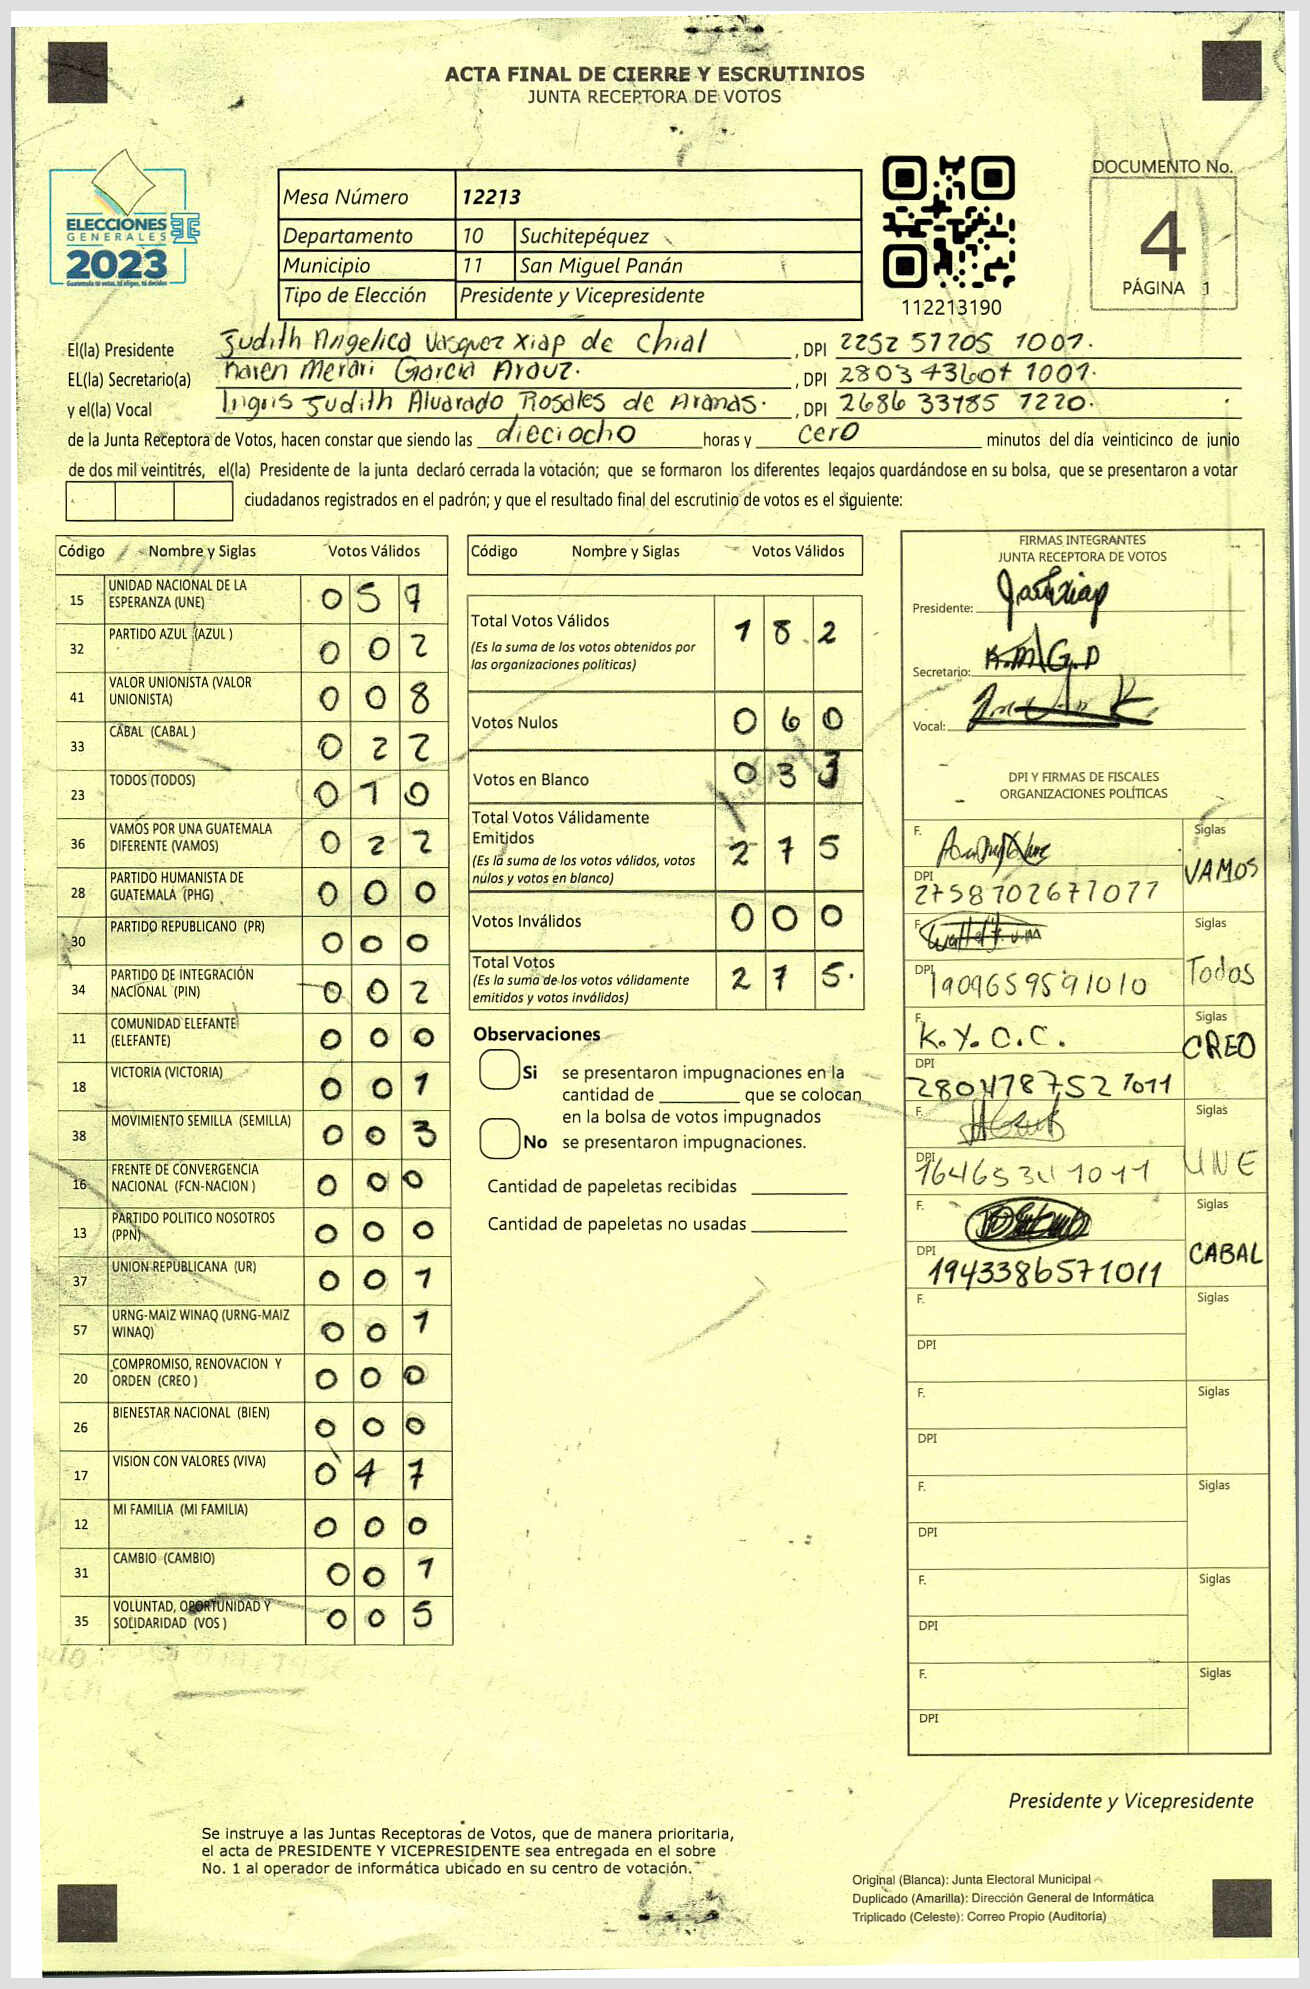 ACTA FINAL DE CIERRE Y ESCRUTINIOS
JUNTA RECEPTORA DE VOTOS
ELECCIONES
GENERALES
2023
Guatemala tú votas, tú eliges, tú decides
Mesa Número 12213
Departamento 10 Suchitepéquez
Municipio 11 San Miguel Panán
Tipo de Elección Presidente y Vicepresidente
112213190
DOCUMENTO No.
4
PÁGINA 1
El(la) Presidente Judith Angelica Vasquez Xiap de Chial, DPI 2252 51205 1001.
EL(la) Secretario(a) Karen Merari Garcia Arauz., DPI 2803 43604 1001.
y el(la) Vocal Judith Alvarado Rosales de Aranas., DPI 2686 33785 1220.
de la Junta Receptora de Votos, hacen constar que siendo las dieciocho horas y cero minutos del día veinticinco de junio
de dos mil veintitrés, el(la) Presidente de la junta declaró cerrada la votación; que se formaron los diferentes legajos quardándose en su bolsa, que se presentaron a votar
ciudadanos registrados en el padrón; y que el resultado final del escrutinio de votos es el siguiente:
Código Nombre y Siglas Votos Válidos
15 UNIDAD NACIONAL DE LA ESPERANZA (UNE) 0 5 7
32 PARTIDO AZUL (AZUL ) 0 0 2
41 VALOR UNIONISTA (VALOR UNIONISTA) 0 0 8
33 CABAL (CABAL ) 0 2 2
23 TODOS (TODOS) 0 1 0
36 VAMOS POR UNA GUATEMALA DIFERENTE (VAMOS) 0 2 2
28 PARTIDO HUMANISTA DE GUATEMALA (PHG) 0 0 0
30 PARTIDO REPUBLICANO (PR) 0 0 0
34 PARTIDO DE INTEGRACIÓN NACIONAL (PIN) 0 0 2
11 COMUNIDAD ELEFANTE (ELEFANTE) 0 0 0
18 VICTORIA (VICTORIA) 0 0 1
38 MOVIMIENTO SEMILLA (SEMILLA) 0 0 3
16 FRENTE DE CONVERGENCIA NACIONAL (FCN-NACION ) 0 0 0
13 PARTIDO POLITICO NOSOTROS (PPN) 0 0 0
37 UNION REPUBLICANA (UR) 0 0 1
57 URNG-MAIZ WINAQ (URNG-MAIZ WINAQ) 0 0 1
20 COMPROMISO, RENOVACION Y ORDEN (CREO ) 0 0 0
26 BIENESTAR NACIONAL (BIEN) 0 0 0
17 VISION CON VALORES (VIVA) 0 4 7
12 MI FAMILIA (MI FAMILIA) 0 0 0
31 CAMBIO (CAMBIO) 0 0 1
35 VOLUNTAD, OPORTUNIDAD Y SOLIDARIDAD (VOS ) 0 0 5
Código Nombre y Siglas Votos Válidos
Total Votos Válidos 1 8 2
(Es la suma de los votos obtenidos por
las organizaciones políticas)
Votos Nulos 0 6 0
Votos en Blanco 0 3 3
Total Votos Válidamente
Emitidos 2 7 5
(Es la suma de los votos válidos, votos
nulos y votos en blanco)
Votos Inválidos 0 0 0
Total Votos 2 7 5.
(Es la suma de los votos válidamente
emitidos y votos inválidos)
Observaciones
Si se presentaron impugnaciones en la
cantidad de ________ que se colocan
en la bolsa de votos impugnados
No se presentaron impugnaciones.
Cantidad de papeletas recibidas
Cantidad de papeletas no usadas
FIRMAS INTEGRANTES
JUNTA RECEPTORA DE VOTOS
Presidente:
Secretario: K.M.G.D
Vocal:
DPI Y FIRMAS DE FISCALES
ORGANIZACIONES POLÍTICAS
F. Siglas
DPI 2758702671077 VAMOS
F. Siglas
DPI 1909659591010 Todos
F. K.Y.C.C. Siglas
DPI 2804787521011 CREO
F. Siglas
DPI UNE
F. Siglas
DPI 1943386571011 CABAL
F. Siglas
DPI
F. Siglas
DPI
F. Siglas
DPI
F. Siglas
DPI
F. Siglas
DPI
Presidente y Vicepresidente
Se instruye a las Juntas Receptoras de Votos, que de manera prioritaria,
el acta de PRESIDENTE Y VICEPRESIDENTE sea entregada en el sobre
No. 1 al operador de informática ubicado en su centro de votación.
Original (Blanca): Junta Electoral Municipal
Duplicado (Amarilla): Dirección General de Informática
Triplicado (Celeste): Correo Propio (Auditoría)